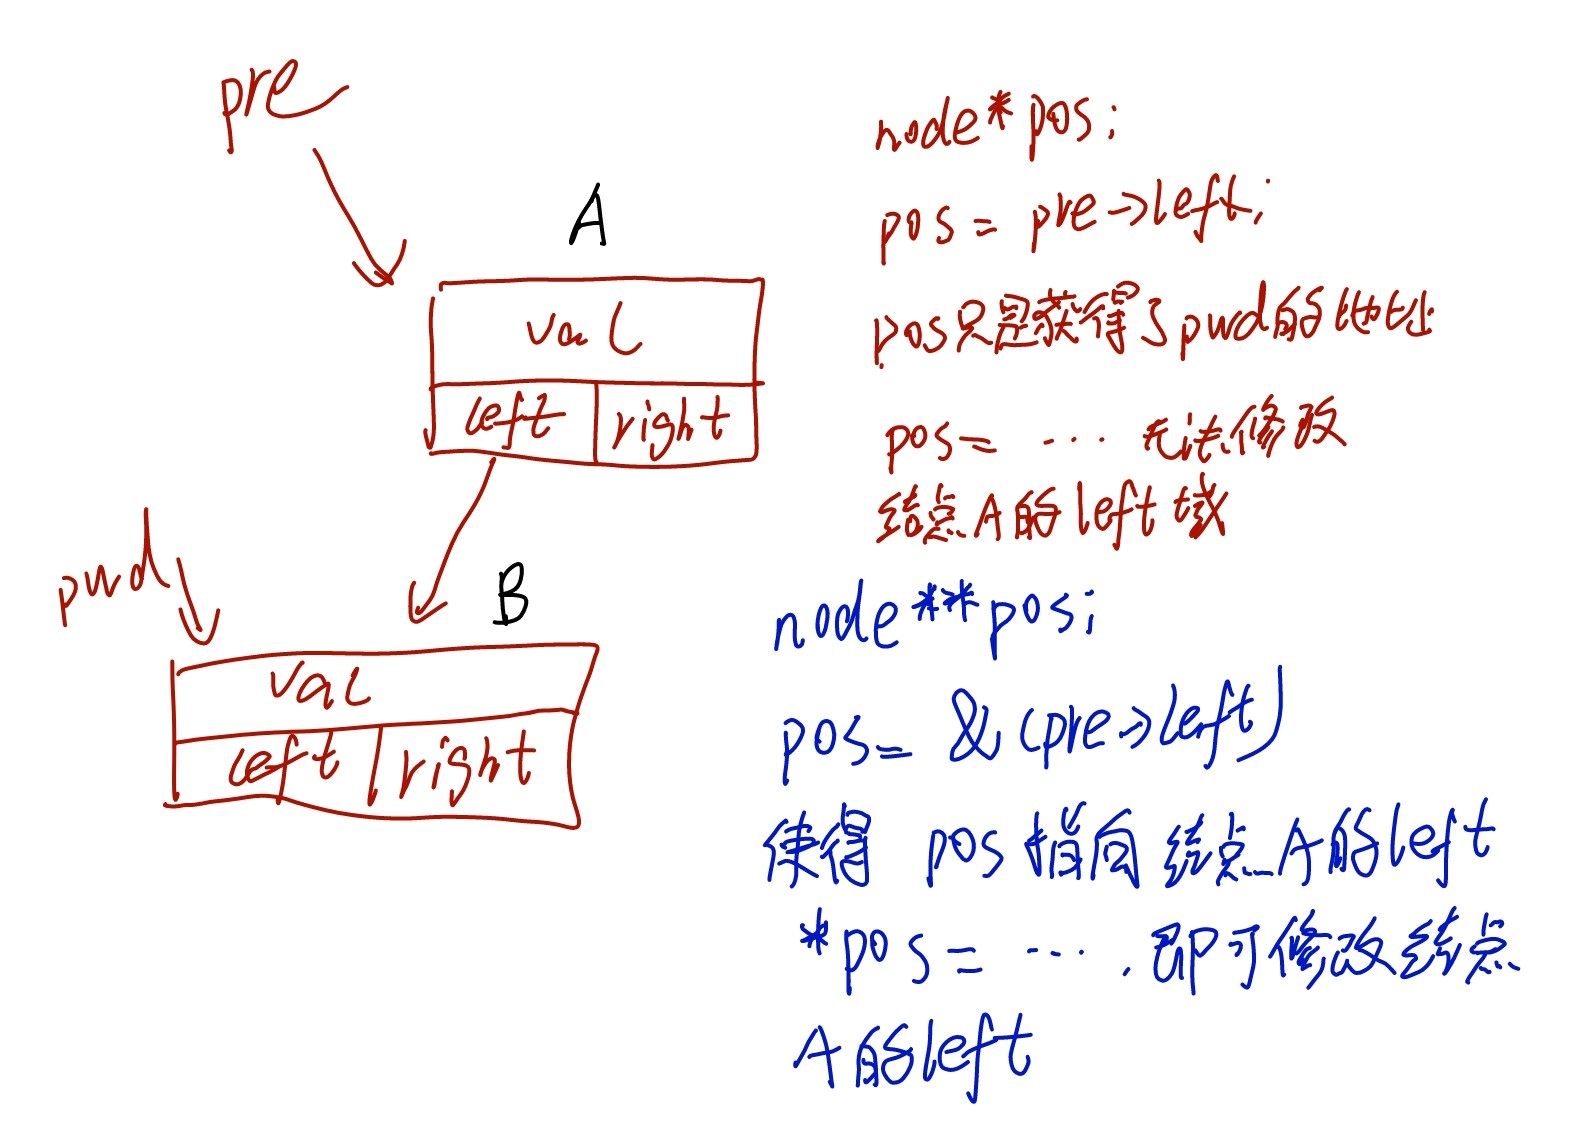 pre
A
val
left right
pwd
B
val
left right
node*pos;
pos = pre->left;
pos只是获得了pwd的地址
pos= ... 无法修改
结点A的left域
node**pos;
pos= &(pre->left)
使得 pos指向结点A的left
*pos= ... . 即可修改结点
A的left